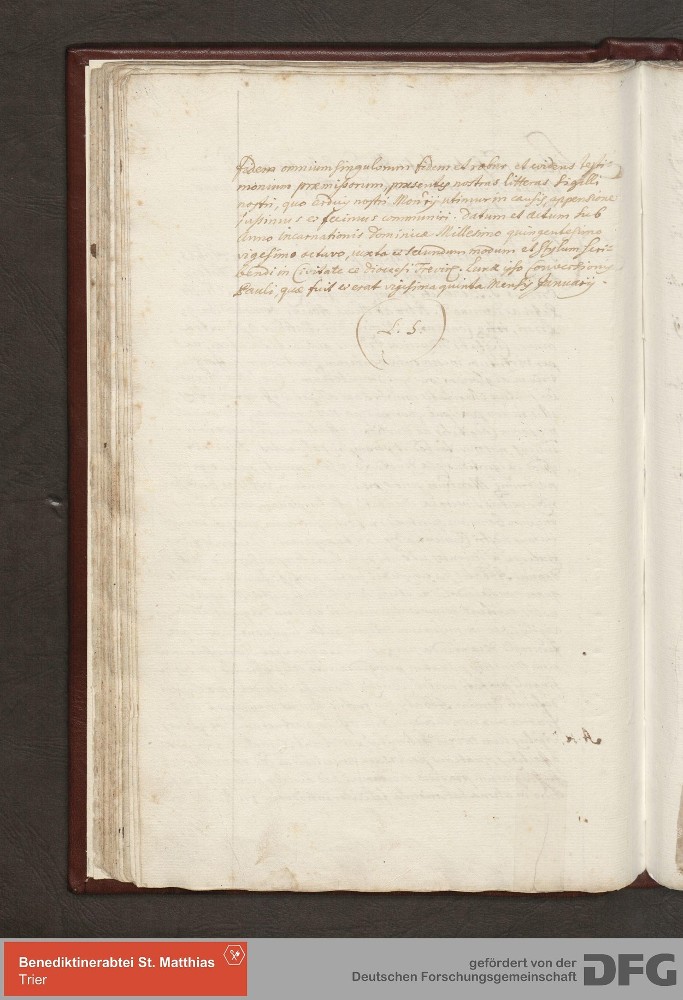 fidem omnium singulorum fidem et robur et evidens testi-
monium præmissorum, præsentes nostras litteras sigilli
nostri, quo in arduis nostri Monrij utimur in causis, appensione
jussimus et fecimus communiri. Datum et actum sub
Anno incarnationis Dominicæ Millesimo quingentesimo
vigesimo octavo, juxta et secundum modum et stylum scri-
bendi in Civitate et Diocesi Treviren. Luce ipso Conversionis
Pauli, quæ fuit et erat vigesima quinta Mensis Januarij.
L. S.
Benediktinerabtei St. Matthias
Trier
gefördert von der
Deutschen Forschungsgemeinschaft
DFG